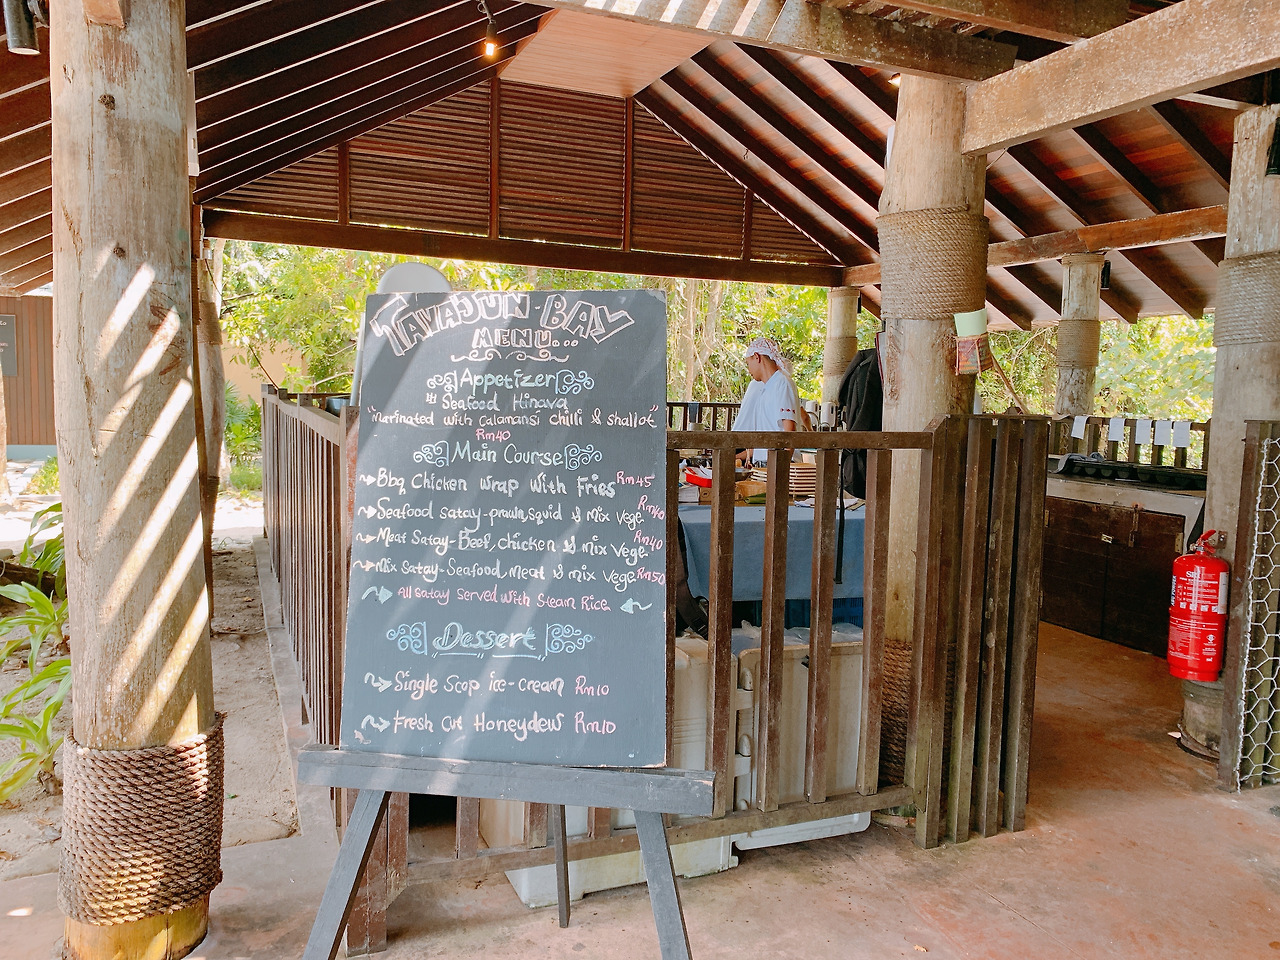 TAVAJUN BAY
MENU...
Appetizer
Seafood Hinava
"Marinated with Calamansi chilli & shallot"
Rm40
Main Course
Bbq Chicken wrap with Fries Rm45
Seafood satay-prawn,squid & mix vege Rm40
Meat Satay-Beef, chicken & mix vege Rm40
Mix satay-Seafood, meat & mix vege Rm50
All satay served with Steam Rice
Dessert
Single Scop ice-cream Rm10
Fresh Cut Honeydew Rm10